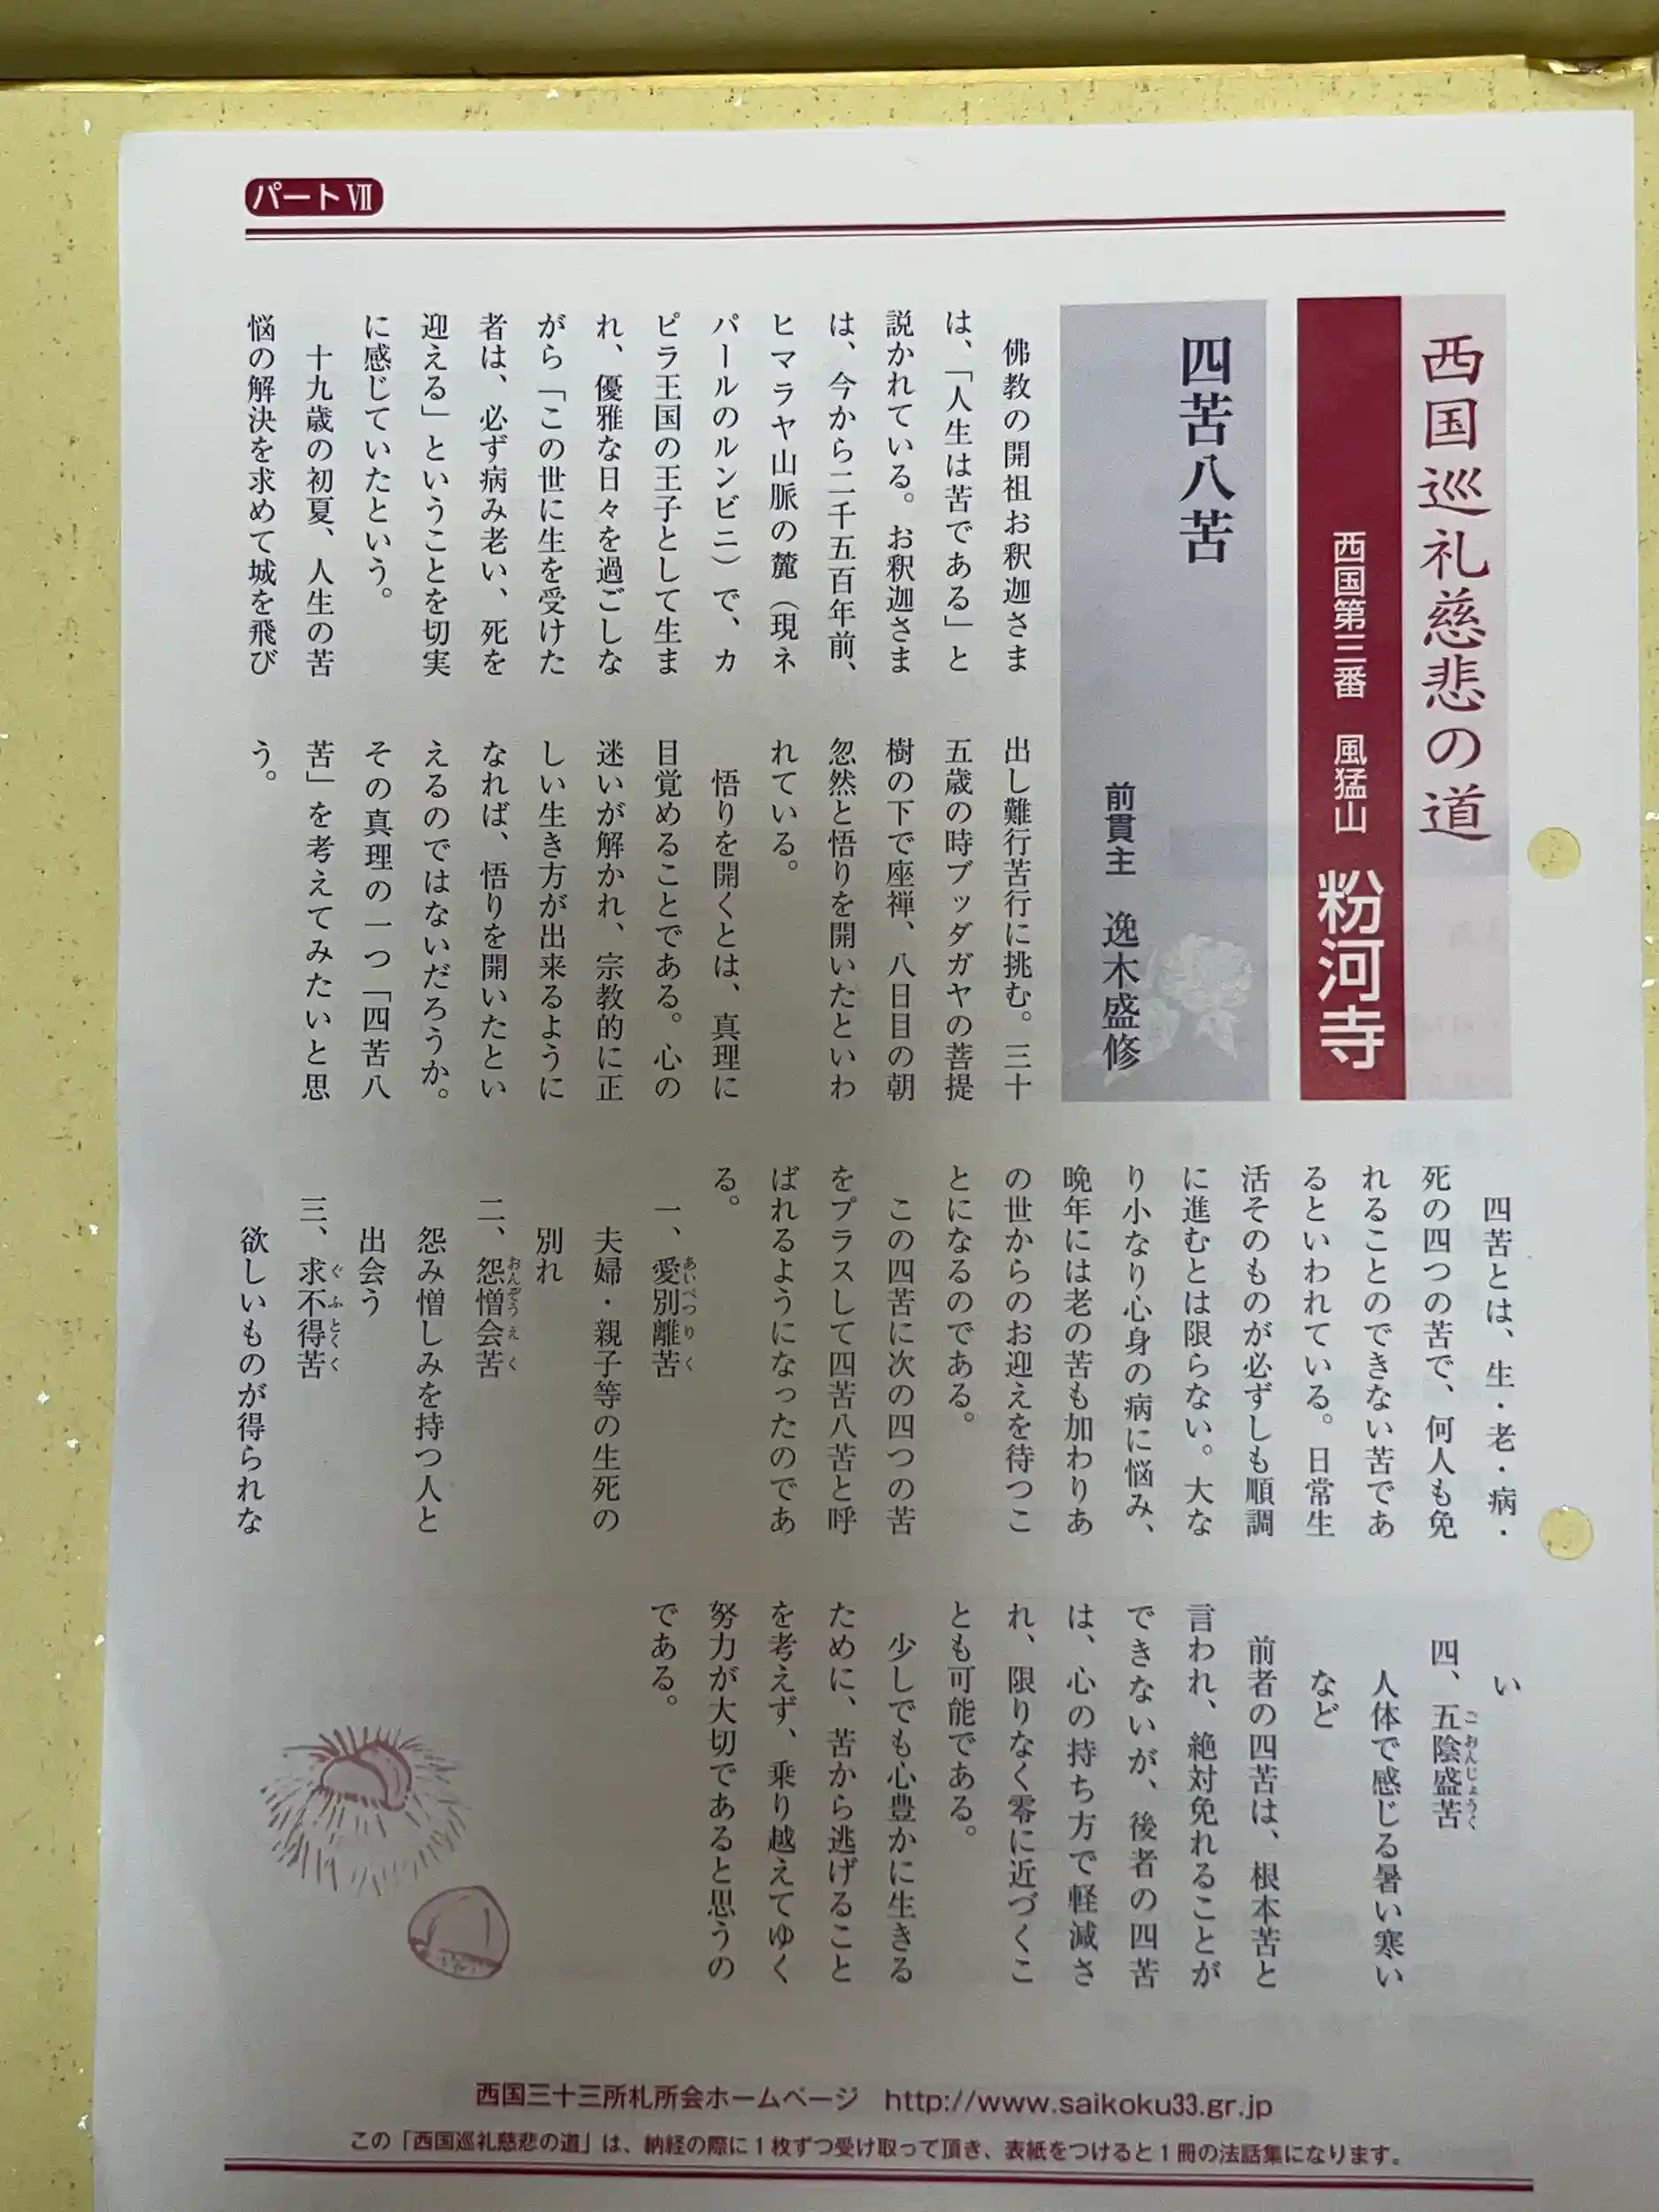 パートⅦ
西国巡礼慈悲の道
西国第三番　風猛山　粉河寺
四苦八苦
前貫主　逸木盛修
佛教の開祖お釈迦さま
は、「人生は苦である」と
説かれている。お釈迦さま
は、今から二千五百年前、
ヒマラヤ山脈の麓（現ネ
パールのルンビニ）で、カ
ピラ王国の王子として生ま
れ、優雅な日々を過ごしな
がら「この世に生を受けた
者は、必ず病み老い、死を
迎える」ということを切実
に感じていたという。
十九歳の初夏、人生の苦
悩の解決を求めて城を飛び
出し難行苦行に挑む。三十
五歳の時ブッダガヤの菩提
樹の下で座禅、八日目の朝
忽然と悟りを開いたといわ
れている。
悟りを開くとは、真理に
目覚めることである。心の
迷いが解かれ、宗教的に正
しい生き方が出来るように
なれば、悟りを開いたとい
えるのではないだろうか。
その真理の一つ「四苦八
苦」を考えてみたいと思
う。
四苦とは、生・老・病・
死の四つの苦で、何人も免
れることのできない苦であ
るといわれている。日常生
活そのものが必ずしも順調
に進むとは限らない。大な
り小なり心身の病に悩み、
晩年には老の苦も加わりあ
の世からのお迎えを待つこ
とになるのである。
この四苦に次の四つの苦
をプラスして四苦八苦と呼
ばれるようになったのであ
る。
一、愛別離苦
あいべつりく
夫婦・親子等の生死の
別れ
二、怨憎会苦
おんぞうえく
怨み憎しみを持つ人と
出会う
三、求不得苦
ぐふとくく
欲しいものが得られな
い
四、五陰盛苦
ごおんじょうく
人体で感じる暑い寒い
など
前者の四苦は、根本苦と
言われ、絶対免れることが
できないが、後者の四苦
は、心の持ち方で軽減さ
れ、限りなく零に近づくこ
とも可能である。
少しでも心豊かに生きる
ために、苦から逃げること
を考えず、乗り越えてゆく
努力が大切であると思うの
である。
西国三十三所札所会ホームページ　http://www.saikoku33.gr.jp
この「西国巡礼慈悲の道」は、納経の際に１枚ずつ受け取って頂き、表紙をつけると１冊の法話集になります。